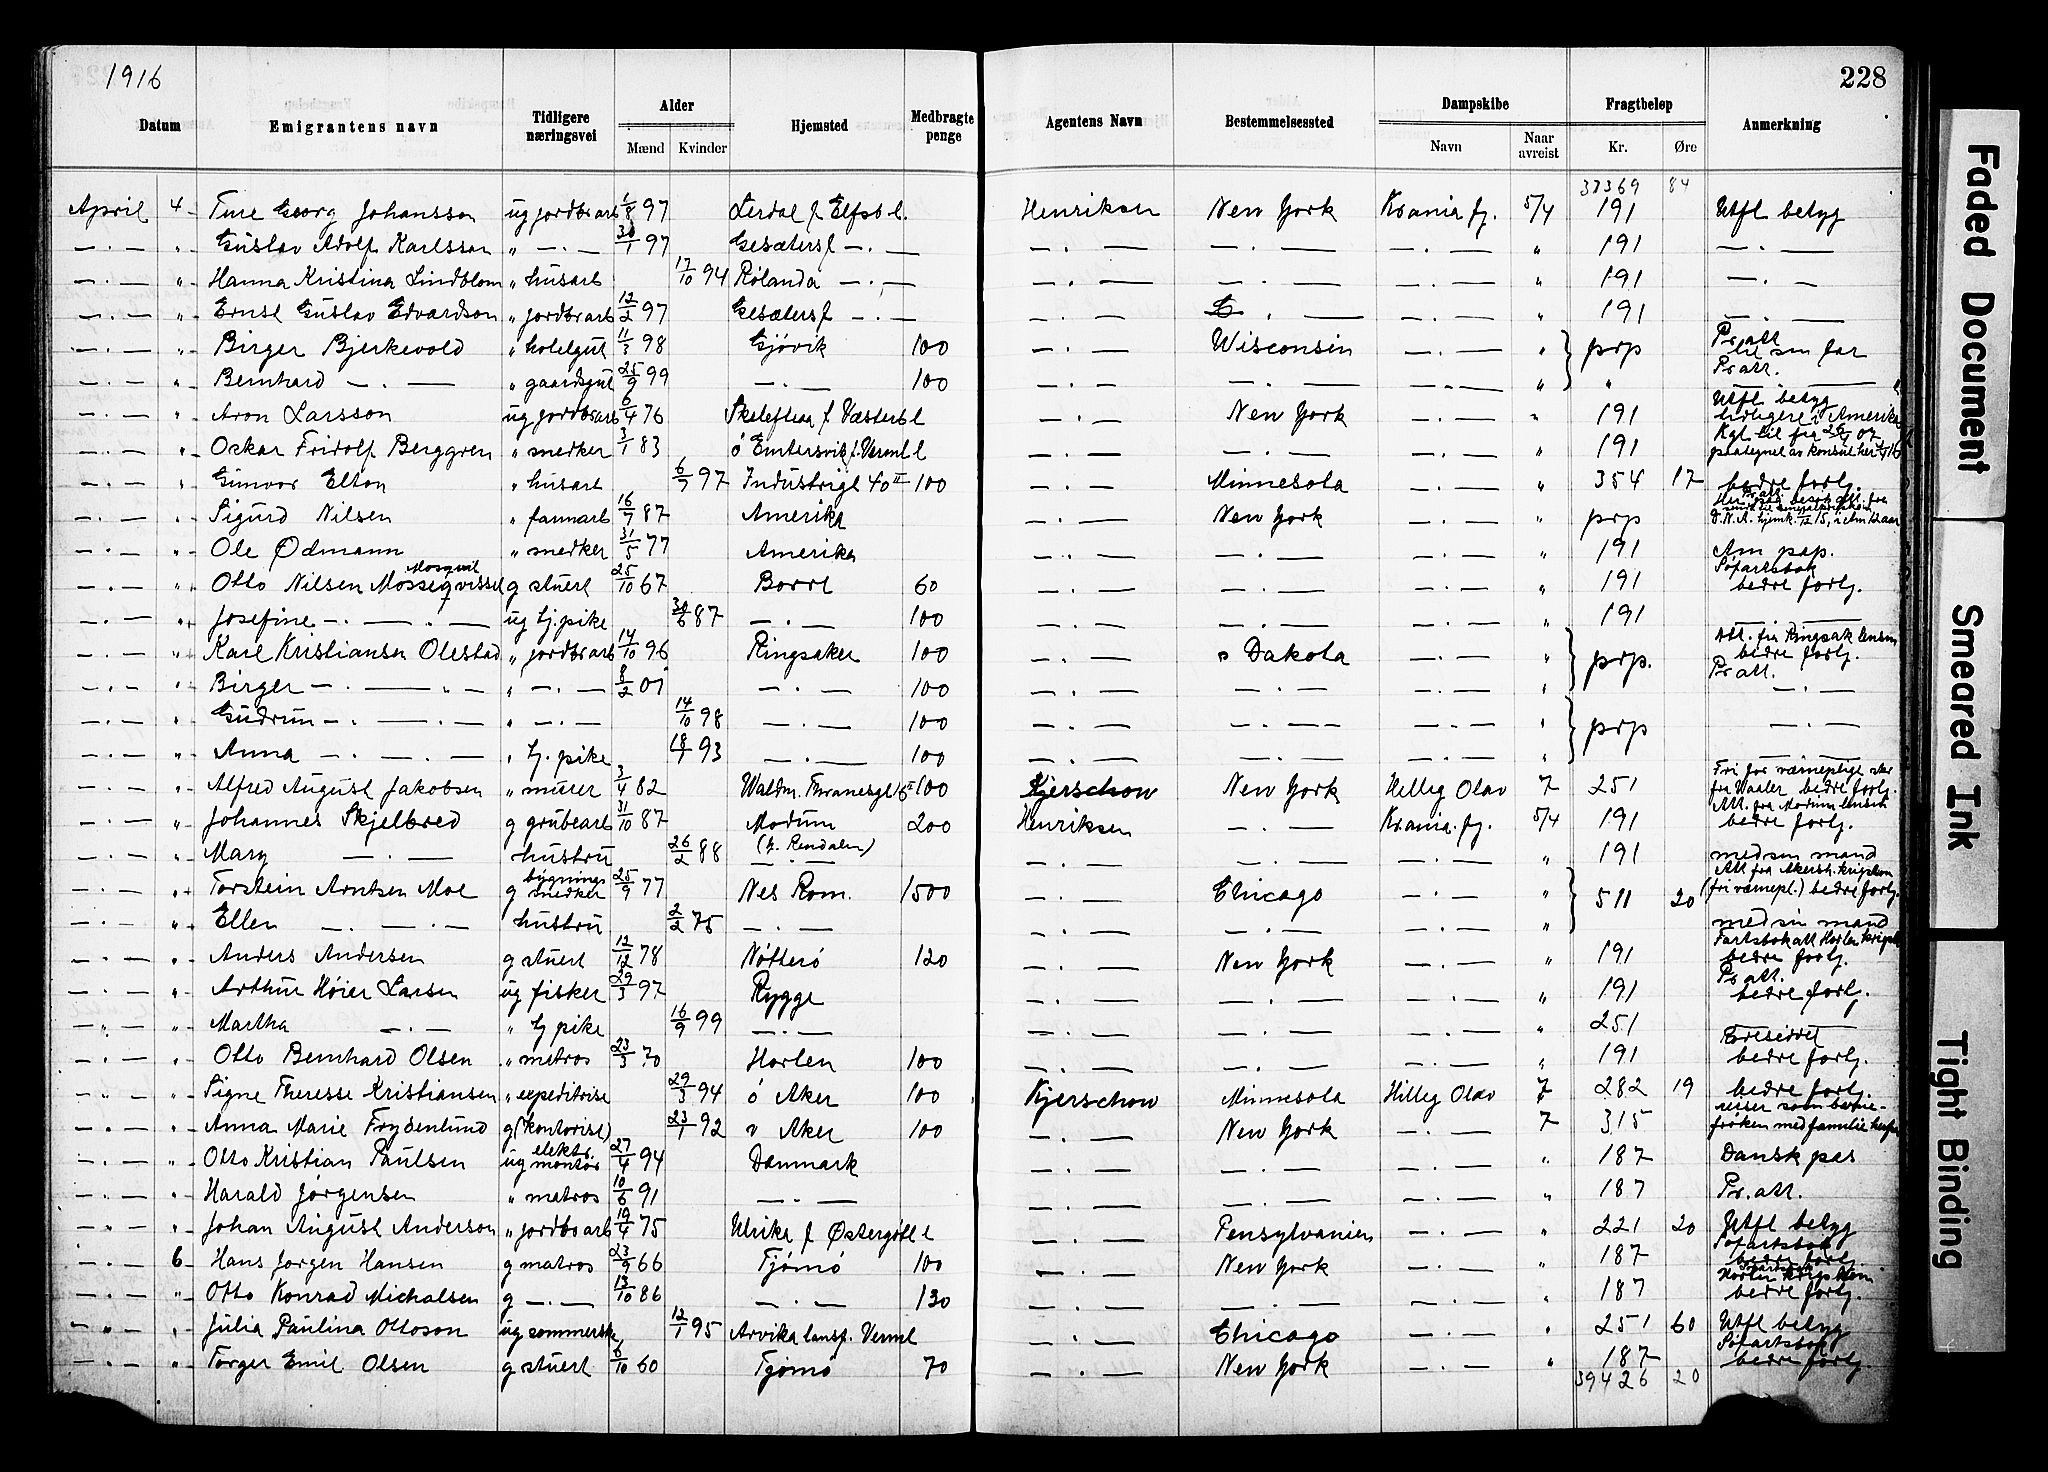 1916
228
Datum | Emigrantens navn | Tidligere næringsvei | Alder Mænd Kvinder | Hjemsted | Medbragte penge | Agentens Navn | Bestemmelsessted | Dampskibe Navn Naar avreist | Fragtbeløp Kr. Øre | Anmerkning
37369 84
April 4 Ture Georg Johansson ug jordbrarb 1/8 97 Lerdal f Elfsb l. Henriksen New York Krania fj. 5/4 191 Utfl betyg
— . — " Gustav Adolf Karlsson " — . — 30/1 97 Gesäters f — . — — . — — . — — . — " 191 — . —
— . — " Hanna Kristina Lindblom " husarb 17/10 94 Rölanda — . — — . — — . — — . — " 191 — . —
— . — " Ernst Gustav Edvardson " jordbrarb 12/2 97 Gesäters f — . — — . — — . — — . — " 191 — . —
— . — " Birger Bjerkevold " hotelgut 11/3 98 Gjövik 100 — . — Wisconsin — . — " prp Pr. att. til sin far
— . — " Bernhard — . — " gaardsgut 25/9 99 — . — 100 — . — — . — — . — " " Pr att.
— . — " Aron Larsson ug jordbrarb 6/4 76 Skeleftea f Västerb l — . — New York — . — " 191 Utfl. betyg tidligere i Amerika
— . — " Oskar Fridolf Berggren " snedker 3/1 83 ö Emtersvik f. Verml l — . — — . — — . — " 191 paategnet av konsul her
— . — " Gunvor Elton " husarb 6/7 97 Industrigt 40 II 100 — . — Minnesota — . — " 354 17 bedre forlj.
— . — " Sigurd Nilsen " farmarb 16/7 87 Amerika — . — New York — . — " prp
— . — " Ole Ødmann " snedker 31/5 77 Amerika — . — — . — — . — " 191 Am pap.
— . — " Otto Nilsen Mosseqvissel Mosqvil g stuert 25/10 67 Borre 60 — . — — . — — . — " 191 Söfartsbok bedre forlj.
— . — " Josefine — . — ug tj. pike 30/6 87 — . — 100 — . — — . — — . — " 191 — —
— . — " Karl Kristiansen Olestad " jordbrarb 14/10 96 Ringsaker 100 — . — n Dakota — . — " prp. Att. fra Ringsak lensm bedre forlj.
— . — " Birger — . — " — " — . — 8/2 01 — . — 100 — . — — . — — . — " Pr att.
— . — " Gudrun — . — " — . — 14/10 98 — . — 100 — . — — . — — . — " prp — . —
— . — " Anna — . — " tj. pike 18/1 93 — . — 100 — . — — . — — . — " — . —
— . — " Alfred August Jakobsen " murer 3/4 82 Waldm. Thranesgt 16 II 100 Kjerschow New York Hellig Olav 7 251 Fri for værnepligt fra Waaler bedre forlj.
— . — " Johannes Skjelbred g grubearb 31/10 87 Modum 200 Henriksen — . — Krania. fj. 5/4 191 Att. fra Modum lensm. bedre forlj.
— . — " Mary — . — hustru 26/2 88 (f. Rendalen) — . — — . — — . — — . — " 191 med sin mand
— . — " Torstein Arntsen Moe g bygningssnedker 25/9 77 Nes Rom. 1500 — . — Chicago — . — " 511 20 Att fra Akersh. krigskom (fri værnepl.) bedre forlj.
— . — " Ellen — . — hustru 2/2 75 — . — — . — — . — — . — " med sin mand
— . — " Anders Andersen g stuert 12/12 78 Nötterö 120 — . — New York — . — " 191 Fartsbok att Horten krigsk bedre forlj.
— . — " Arthur Höier Larsen ug fisker 29/3 97 Rygge — . — — . — — . — " 191 Pr att. bedre forlj.
— . — " Martha — . — " tj pike 16/9 99 — . — — . — — . — — . — " 251 — —
— . — " Otto Bernhard Olsen " matros 23/3 70 Horten 100 — . — — . — — . — " 191 bedre forlj.
— . — " Signe Therese Kristiansen " expeditrise 29/3 94 ö Aker 100 Kjerschow Minnesota Hellig Olav 7 282 19 bedre forlj.
— . — " Anna Marie Frydenlund g (kontorist) 23/1 92 v Aker 100 — . — New York — . — 7 315 reiser som barnefröken med familie herfra
— . — " Otto Kristian Paulsen ug elektr. montör 27/4 94 Danmark — . — — . — — . — " 187 Dansk pas
— . — " Harald Jörgensen " matros 10/6 91 — . — — . — — . — — . — " 187 Pr. att.
— . — " Johan August Anderson " jordbrarb 19/4 75 Ulrika f Østergötl l — . — Pensylvanien — . — " 221 20 Utfl betyg
— . — 6 Hans Jorgen Hansen g matros 23/9 66 Tjömö 100 — . — New York — . — " 187 Söfartsbok bedre forlj.
— . — " Otto Konrad Michalsen g — . — 13/10 86 — . — 130 — . — — . — — . — " 187 Horten krigskom bedre forlj.
— . — " Julia Paulina Ottoson ug sömmerske 12/1 95 Arvika lansf. Verml — . — Chicago — . — " 251 60 Utfl betyg
— . — " Torger Emil Olsen g stuert 6/10 60 Tjömö 70 — . — New York — . — " 187 Söfartsbok bedre forlj.
39426 20
Faded Document
Smeared Ink
Tight Binding